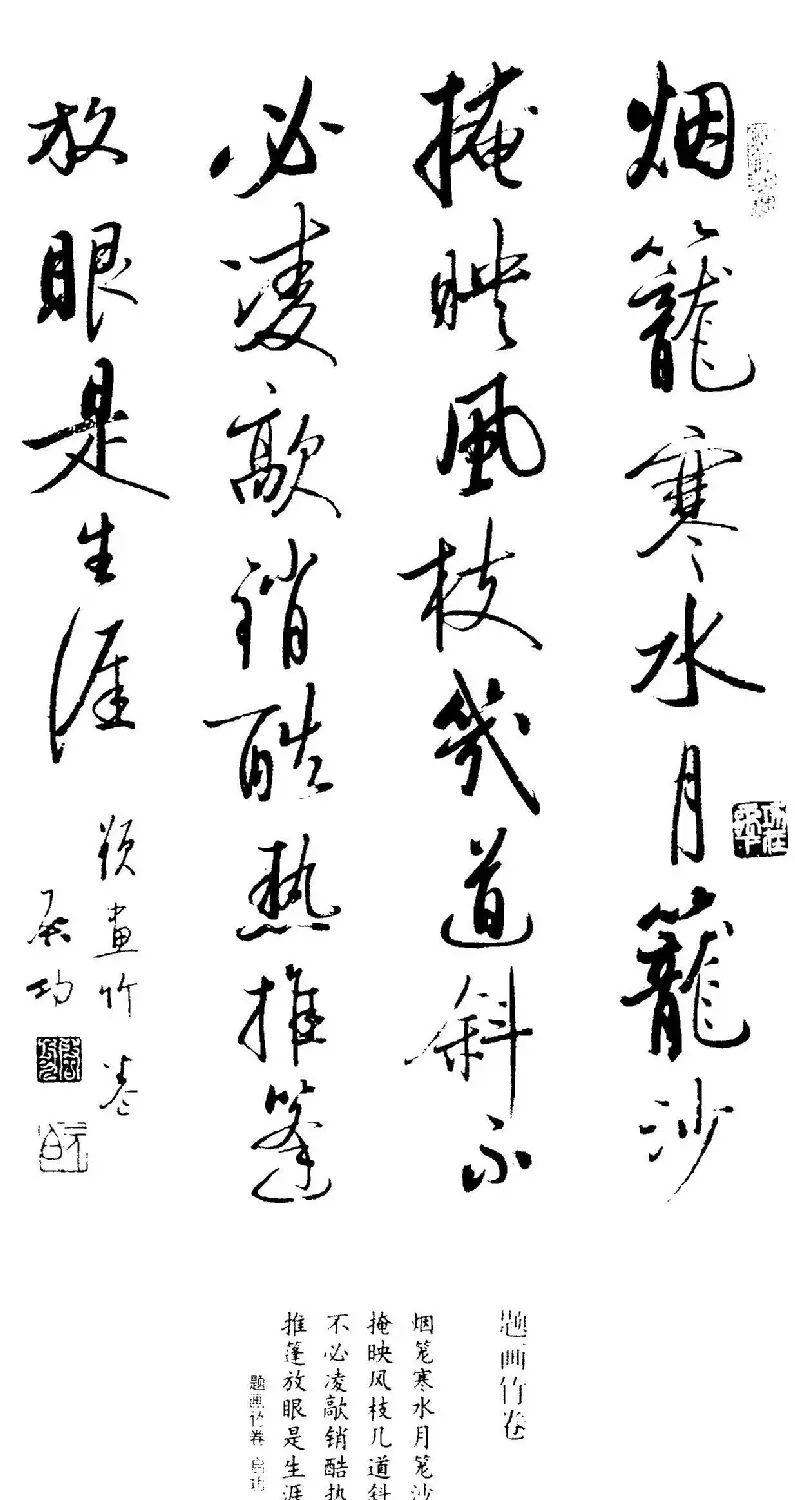 烟籠寒水月籠沙
掩映風枝幾道斜不
必凌歊銷酷熱推篷
放眼是生涯
題畫竹卷
啟功
题画竹卷
烟笼寒水月笼沙
掩映风枝几道斜
不必凌歊销酷热
推篷放眼是生涯
题画竹卷 启功